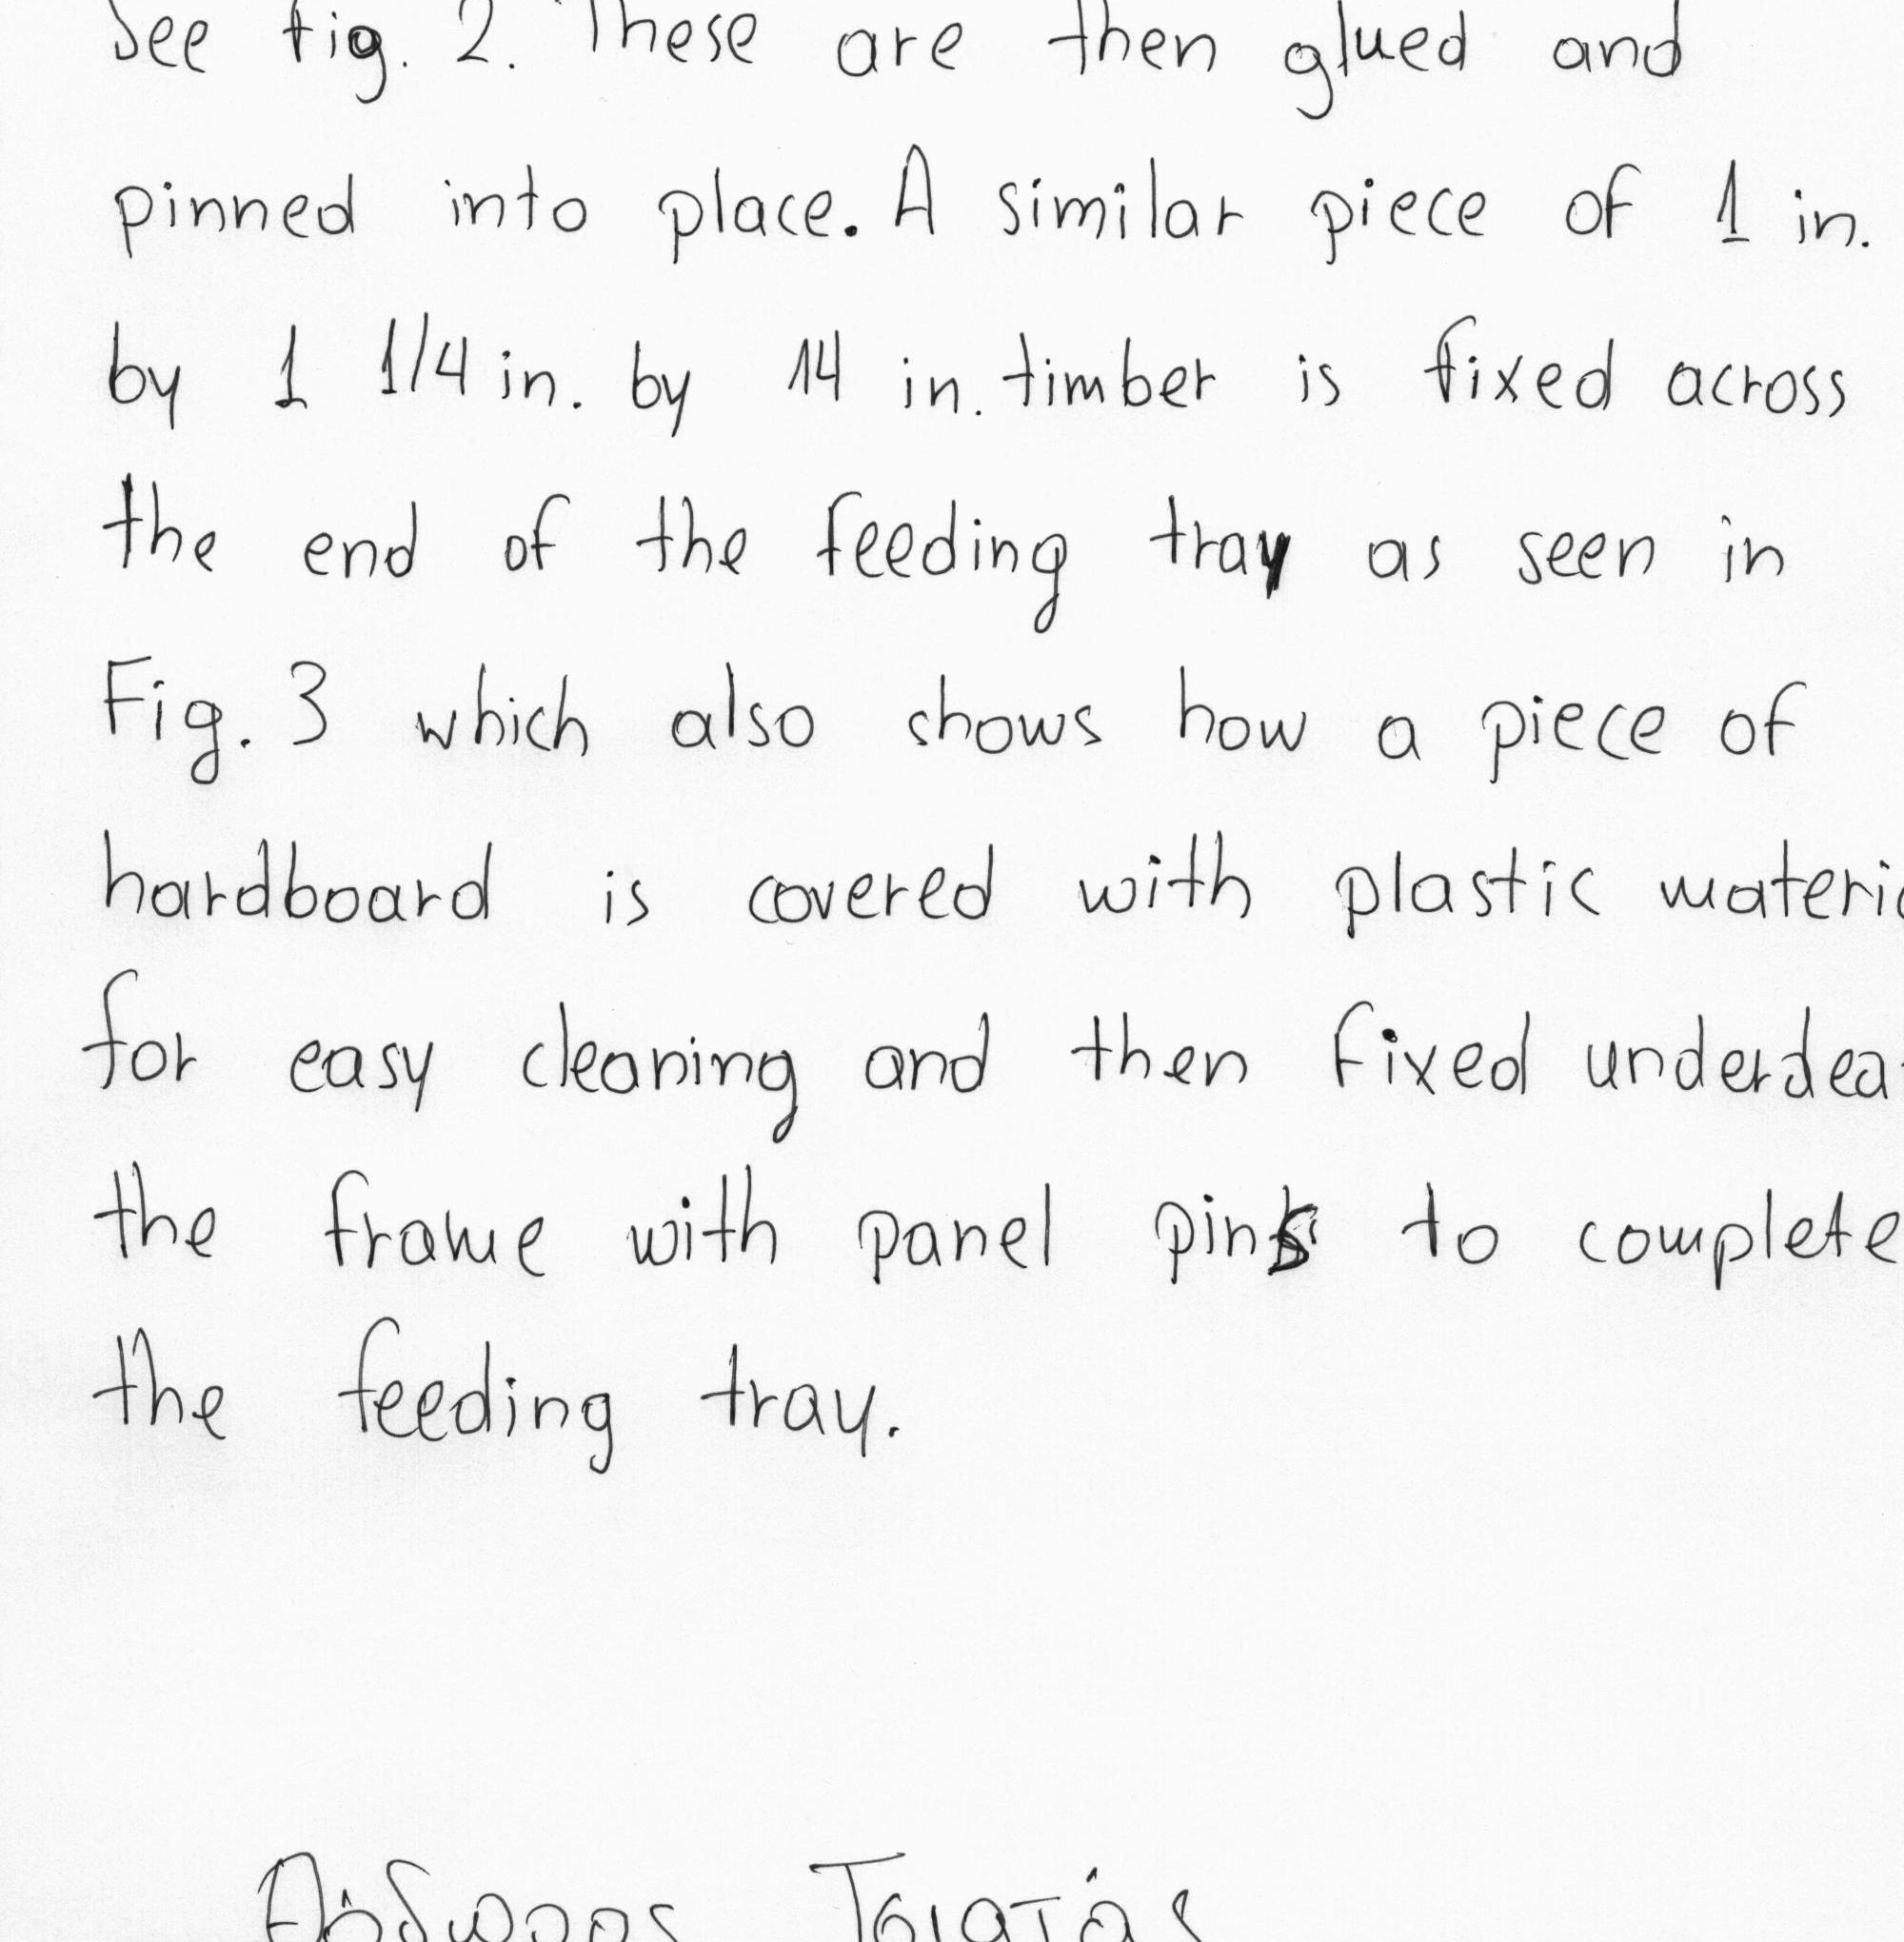 See fig. 2. These are then glued and
pinned into place. A similar piece of 1 in.
by 1 1/4 in. by 14 in. timber is fixed across
the end of the feeding tray as seen in
Fig. 3 which also shows how a piece of
hardboard is covered with plastic
for easy cleaning and then fixed
the frame with panel pins to complete
the feeding tray.